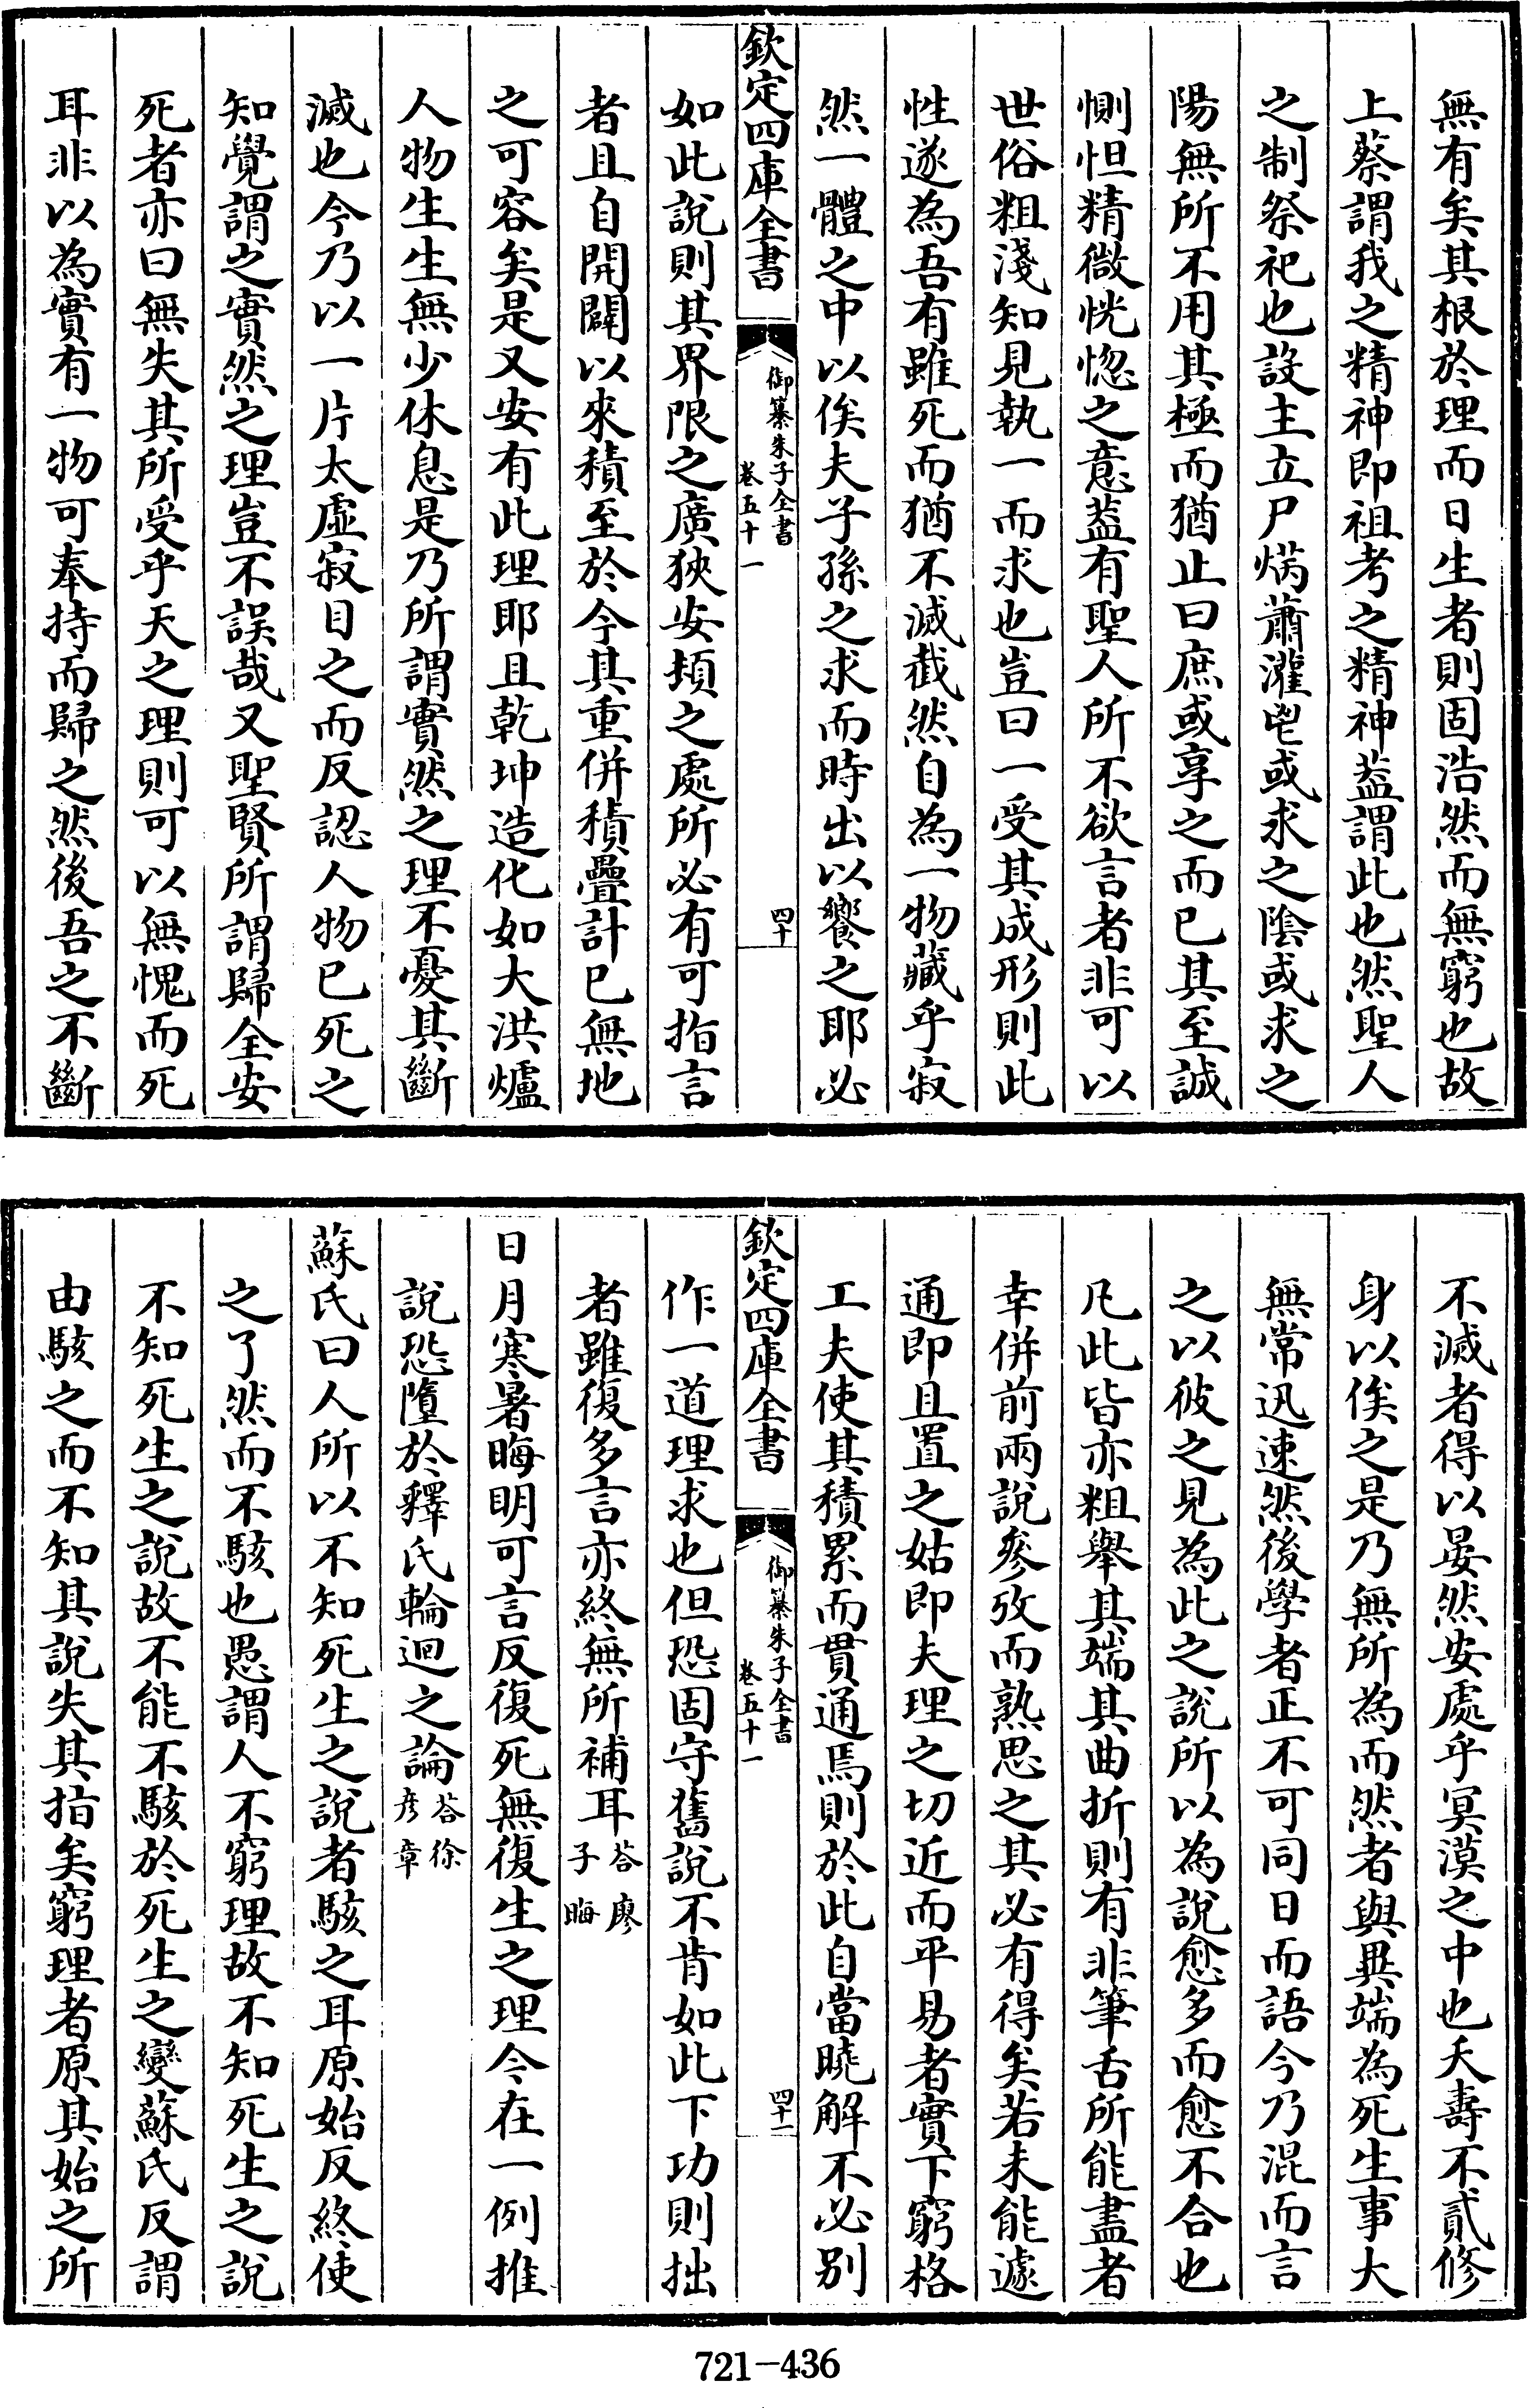 無有矣其根於理而日生者則固浩然而無窮也故
上蔡謂我之精神即祖考之精神葢謂此也然聖人
之制祭祀也設主立尸焫蕭灌鬯或求之陰或求之
陽無所不用其極而猶止曰庶或享之而已其至誠
惻怛精微恍惚之意葢有聖人所不欲言者非可以
世俗粗淺知見執一而求也豈曰一受其成形則此
性遂為吾有雖死而猶不滅截然自為一物藏乎寂
然一體之中以俟夫子孫之求而時出以饗之耶必
欽定四庫全書
御纂朱子全書
卷五十一
四十
如此說則其界限之廣狹安頓之處所必有可指言
者且自開闢以來積至於今其重併積疊計已無地
之可容矣是又安有此理耶且乾坤造化如大洪爐
人物生生無少休息是乃所謂實然之理不憂其斷
滅也今乃以一片太虛寂目之而反認人物已死之
知覺謂之實然之理豈不誤哉又聖賢所謂歸全安
死者亦曰無失其所受乎天之理則可以無愧而死
耳非以為實有一物可奉持而歸之然後吾之不斷
不滅者得以晏然安處乎冥漠之中也夭壽不貳修
身以俟之是乃無所為而然者與異端為死生事大
無常迅速然後學者正不可同日而語今乃混而言
之以彼之見為此之說所以為說愈多而愈不合也
凡此皆亦粗舉其端其曲折則有非筆舌所能盡者
幸併前兩說參攷而熟思之其必有得矣若未能遽
通即且置之姑即夫理之切近而平易者實下窮格
工夫使其積累而貫通焉則於此自當曉解不必别
欽定四庫全書
御纂朱子全書
卷五十一
四十一
作一道理求也但恐固守舊說不肯如此下功則拙
者雖復多言亦終無所補耳 荅廖子晦
日月寒暑晦明可言反復死無復生之理今在一例推
說恐墮於釋氏輪迴之論 荅徐彦章
蘇氏曰人所以不知死生之說者駭之耳原始反終使
之了然而不駭也愚謂人不窮理故不知死生之說
不知死生之說故不能不駭於死生之變蘇氏反謂
由駭之而不知其說失其指矣窮理者原其始之所
721-436